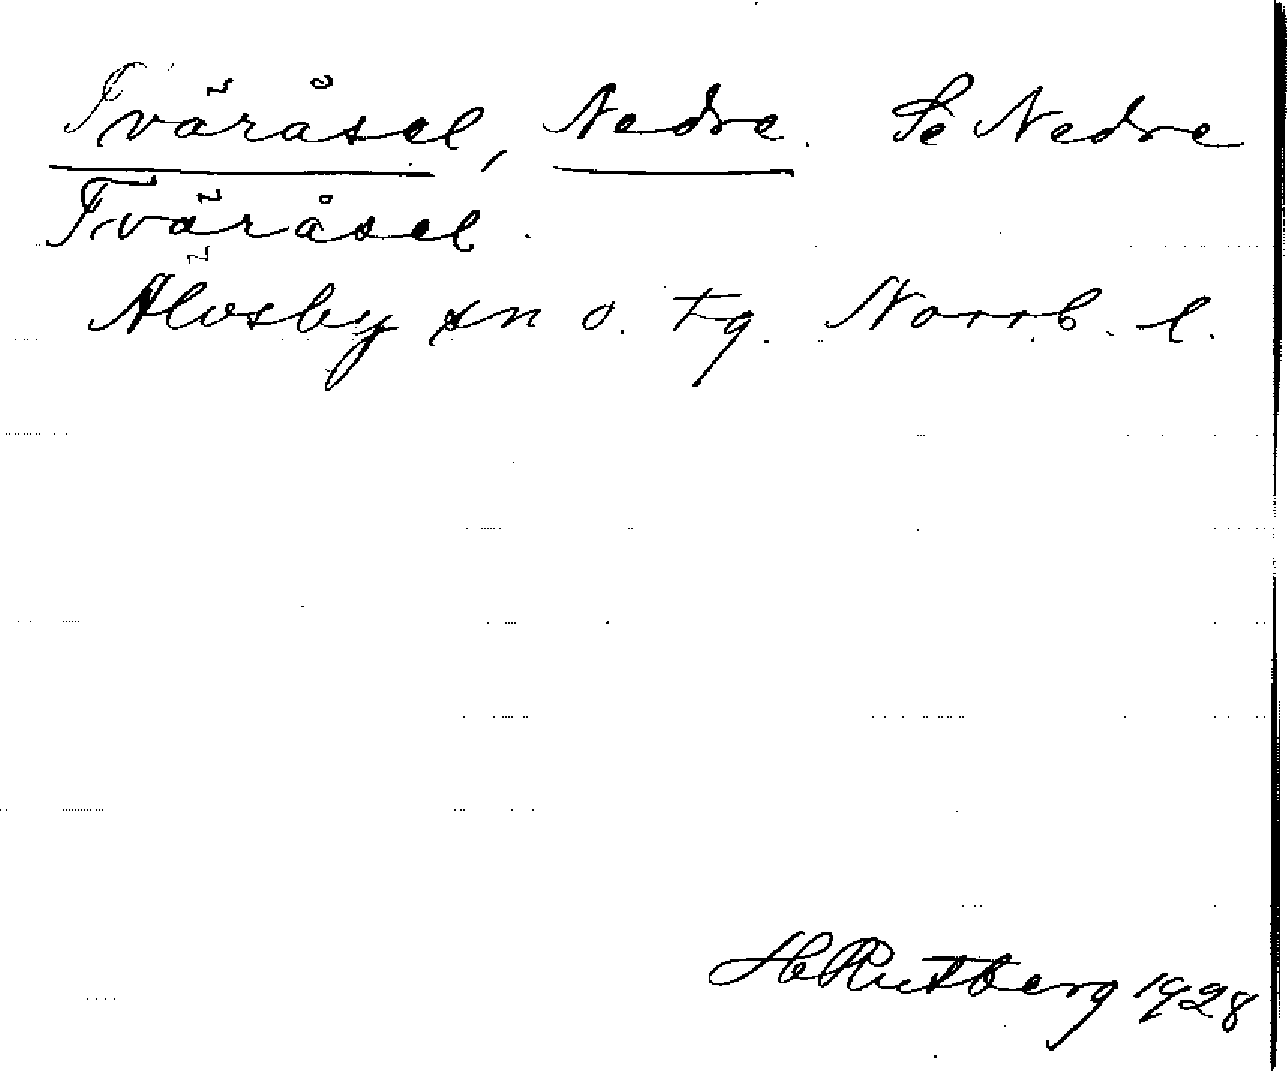 Tväråsel, Nedre. Se Nedre
Tväråsel.
Älvsby sn o. tg. Norrb. l.
H Rutberg 1928